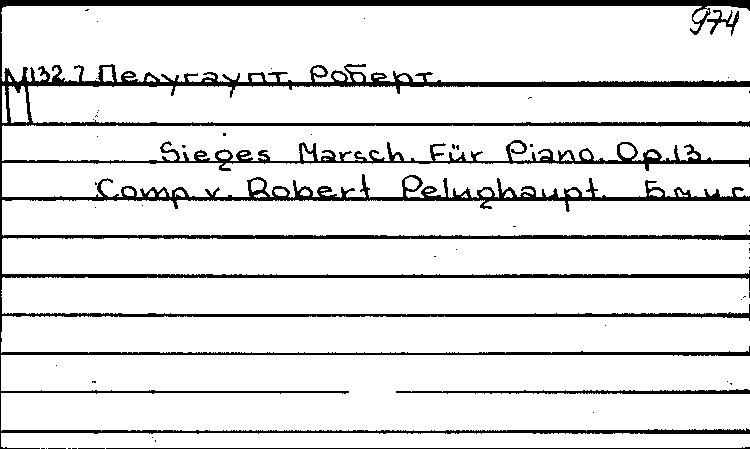 974
М132.7 Пелугаупт, Роберт.
Sieges Marsch. Für Piano. Op.13.
Comp. v. Robert Pelughaupt. Б.м.и.г.